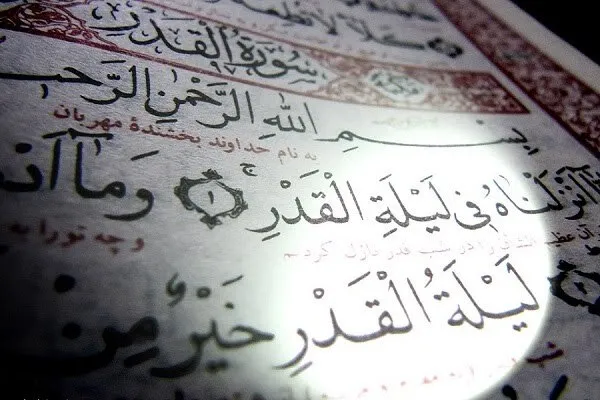 سُورَةُ الْقَدْرِ
بِسْمِ اللهِ الرَّحْمٰنِ الرَّحِ
به نام خداوند بخشندهٔ مهربان
أَنْزَلْنَاهُ فِي لَيْلَةِ الْقَدْرِ ۝١ وَمَا أَدْ
را در شب قدر نازل کردیم و چه تو را به
لَيْلَةُ الْقَدْرِ خَيْرٌ مِنْ
شب